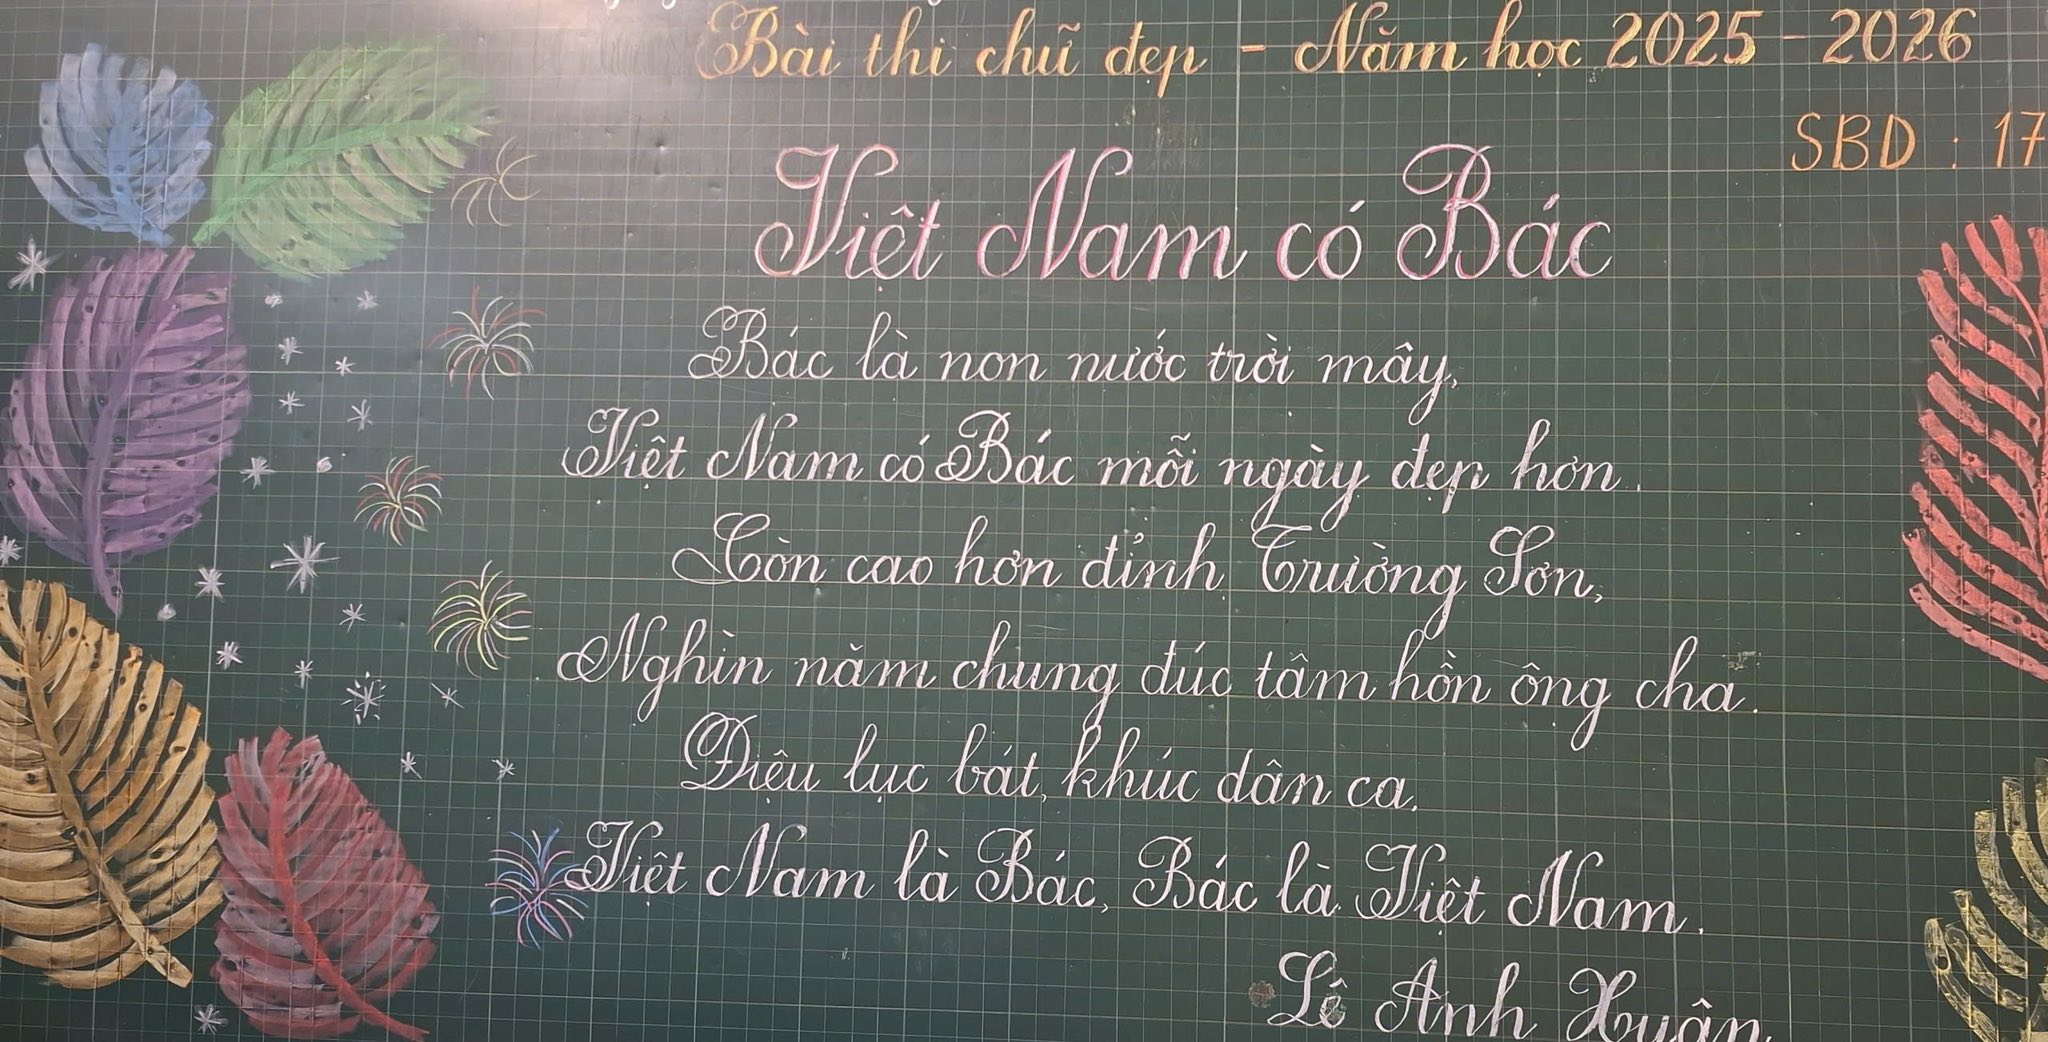 Bài thi chữ đẹp - Năm học 2025 - 2026
SBD : 17
Việt Nam có Bác
Bác là non nước trời mây,
Việt Nam có Bác mỗi ngày đẹp hơn.
Còn cao hơn đỉnh Trường Sơn,
Nghìn năm chung đúc tâm hồn ông cha.
Điệu lục bát, khúc dân ca,
Việt Nam là Bác, Bác là Việt Nam.
Lê Anh Xuân